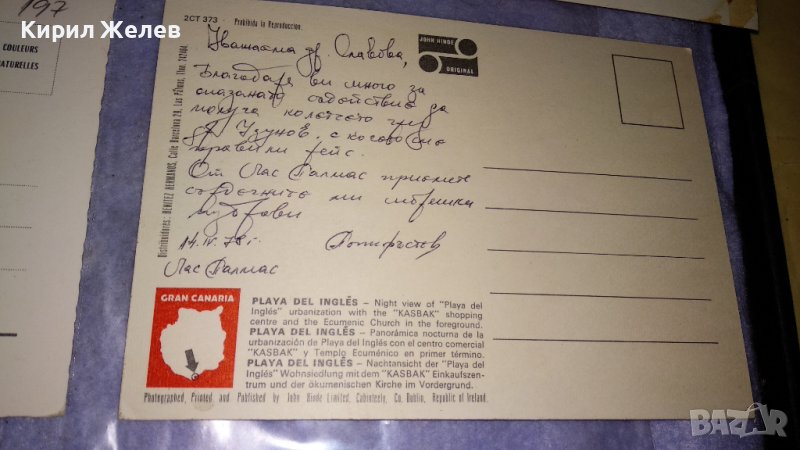 Кирил Желев
197
COULEURS
NATURELLES
2CT 373
Prohibida la Reproduccion
JOHN HINDE
ORIGINAL
Distribuidores: BENITEZ HERMANOS, Calle Barcelona 28, Las Palmas, Tfno. 242004
Уважаема др. Славова,
Благодаря Ви много за
оказаното съдействие да
получа колетчето чрез
др. с когото сме
правили рейс.
От Лас Палмас приемете
сърдечните ми моряшки
поздрави
14.IV.78 г.
Лас Палмас
GRAN CANARIA
PLAYA DEL INGLÉS – Night view of "Playa del
Inglés" urbanization with the "KASBAK" shopping
centre and the Ecumenic Church in the foreground.
PLAYA DEL INGLÉS – Panorámica nocturna de la
urbanización de Playa del Inglés con el centro comercial
"KASBAK" y Templo Ecuménico en primer término.
PLAYA DEL INGLÉS – Nachtansicht der "Playa del
Inglés" Wohnsiedlung mit dem "KASBAK" Einkaufszen-
trum und der ökumenischen Kirche im Vordergrund.
Photographed, Printed and Published by John Hinde Limited, Cabinteely, Co. Dublin, Republic of Ireland.
BAZAR
bg